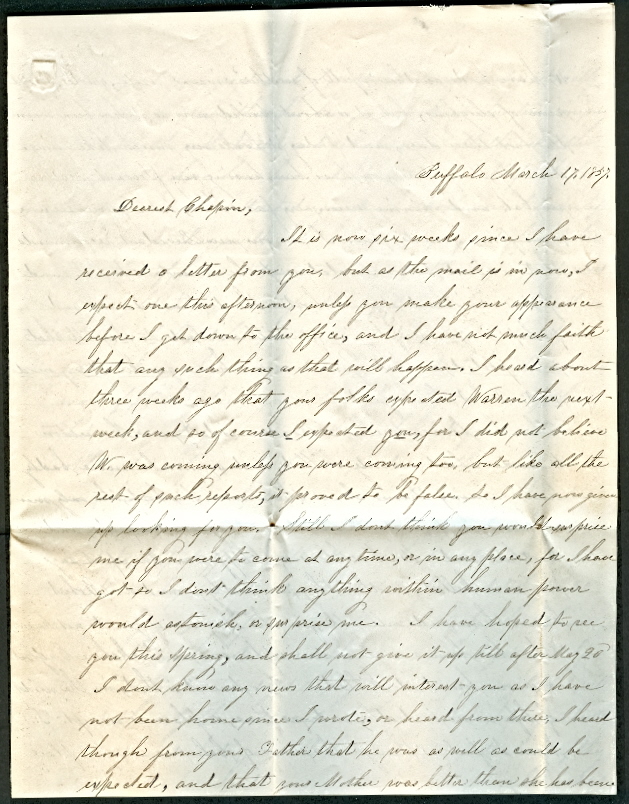 Buffalo March 17, 1857.
Dearest Chapin,
It is now six weeks since I have
received a letter from you, but as the mail is in now, I
expect one this afternoon, unless you make your appearance
before I get down to the office, and I have not much faith
that any such thing as that will happen. I heard about
three weeks ago that your folks expected Warren the next
week, and so of course I expected you, for I did not believe
W. was coming unless you were coming too, but like all the
rest of such reports, it proved to be false. So I have now given
up looking for you. Still I dont think you would surprise
me if you were to come at any time, or in any place, for I have
got so I dont think anything within human power
would astonish, or surprise me. I have hoped to see
you this spring, and shall not give it up till after May 20
I dont know any news that will interest you as I have
not been home since I wrote, or heard from there, I heard
though from your Father that he was as well as could be
expected, and that your Mother was better than she has been